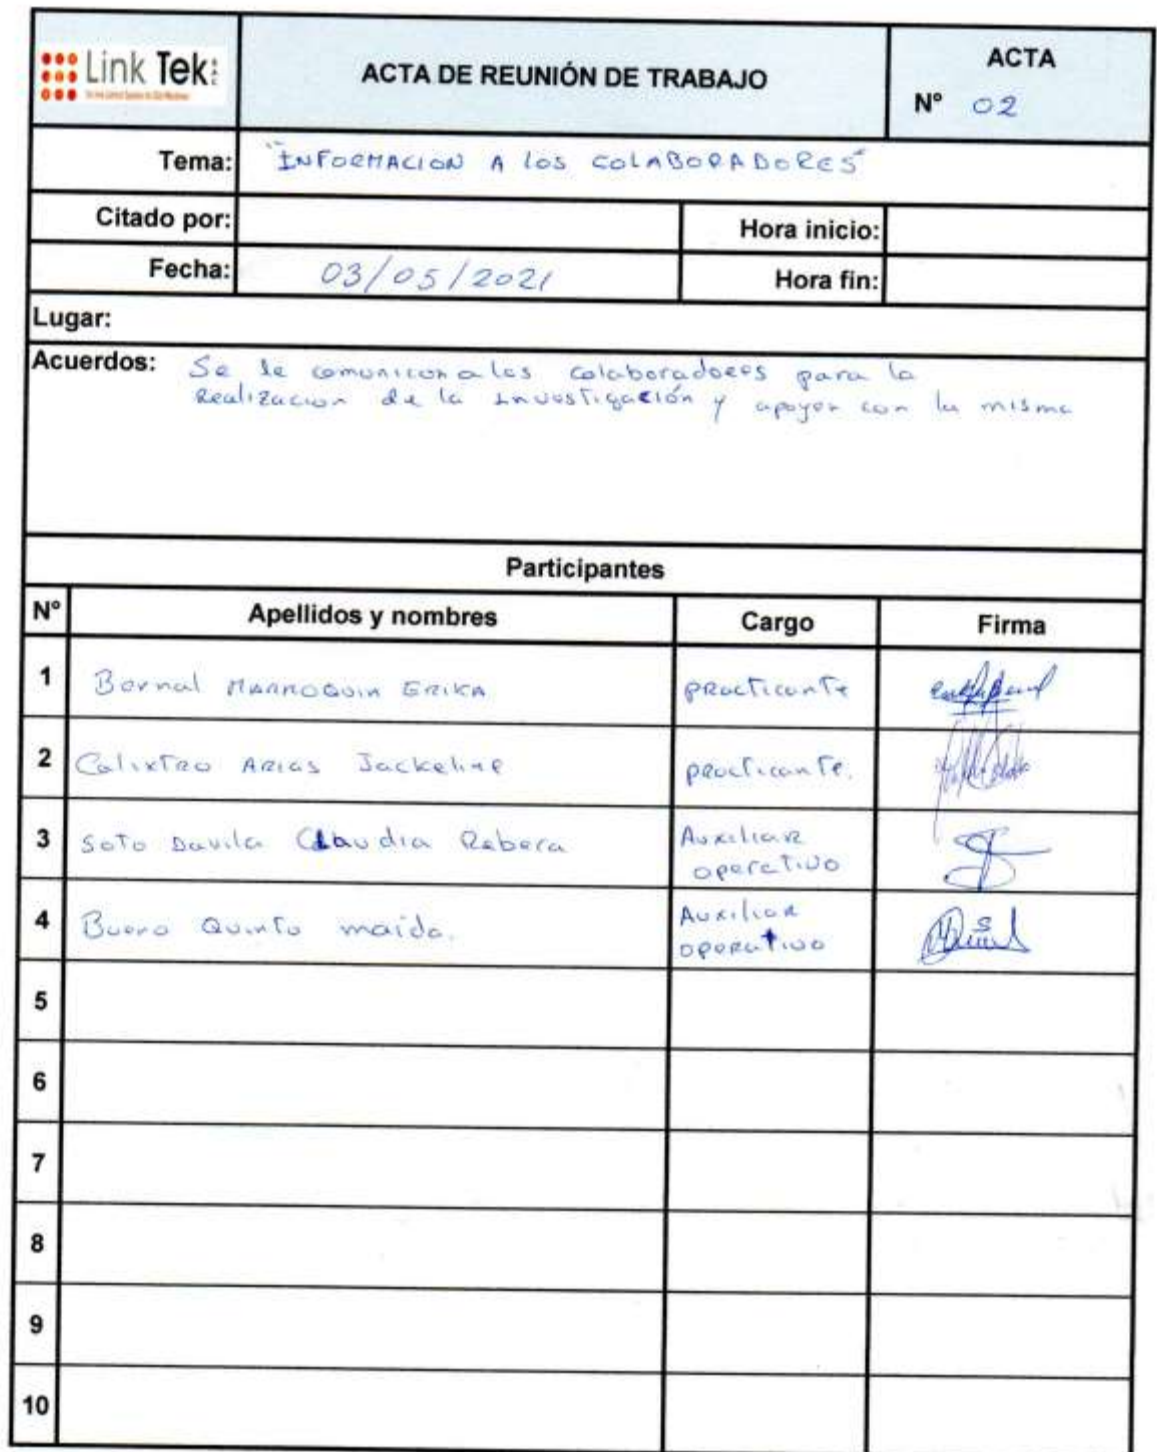 Link Tek SAC
ACTA DE REUNIÓN DE TRABAJO
ACTA
N° 02
Tema: "INFORMACION A los COLABORADORES"
Citado por:
Hora inicio:
Fecha: 03/05/2021
Hora fin:
Lugar:
Acuerdos: Se le comunicon a los colaboradores para la
Realizacion de la investigación y apoyar con la misma
Participantes
N° Apellidos y nombres Cargo Firma
1 Bernal MARROQUIN ERIKA practicante
2 Calixtro Arias Jackeline practicante.
3 Soto Davila Claudia Rebeca Auxiliar
operativo
4 Bueno Quinto maida. Auxiliar
operativo
5
6
7
8
9
10